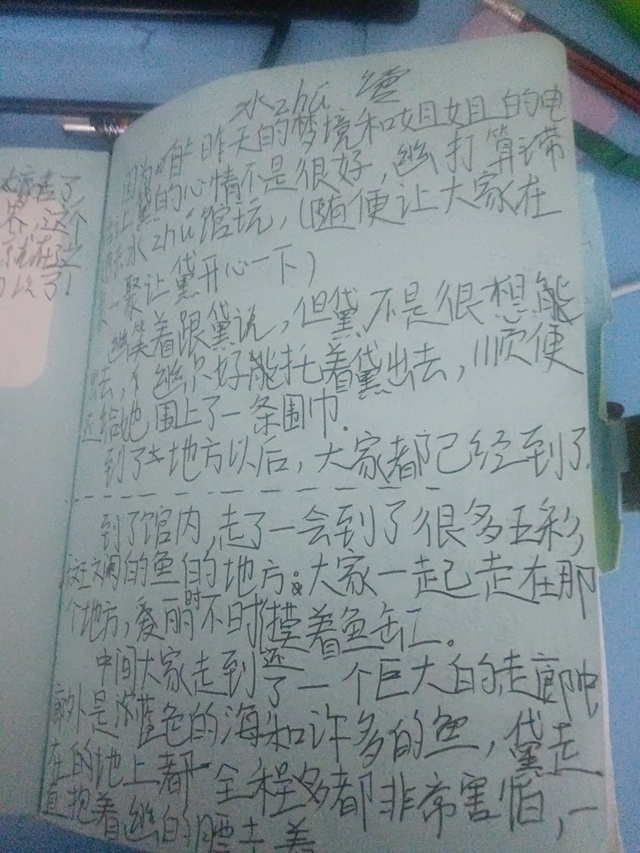 走了
个
就在这
水zhú 馆
因为昨天的梦境和姐姐的电
黛的心情不是很好，幽打算带
水zhú馆玩，(随便让大家在
一聚让黛开心一下)
幽笑着跟黛说，但黛不是很想能
去，幽只好能托着黛出去，顺便
还给她围上了一条围巾.
到了地方以后，大家都已经到了.
到了馆内，走了一会到了很多五彩
斑斓的鱼的地方。大家一起走在那
个地方，爱丽时不时摸着鱼缸。
中间大家还走到了一个巨大的走廊中
廊外是深蓝色的海和许多的鱼，黛走
在的地上都全程多都非常害怕，一
直抱着幽的腰走着